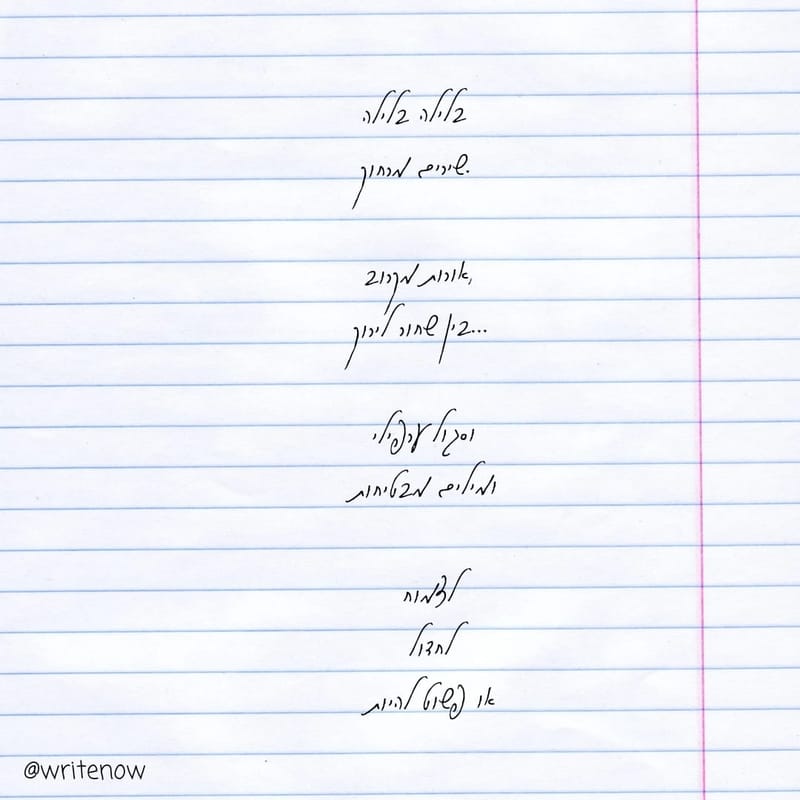 בלילה בלילה
שירים מרחוק.
אורות מקרוב,
בין שחור לירוק...
וסגול ערפילי
ומילים מבטיחות
לצמוח
לחדול
או פשוט להיות
@writenow